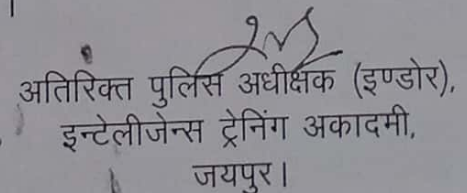 अतिरिक्त पुलिस अधीक्षक (इण्डोर),
इन्टेलीजेन्स ट्रेनिंग अकादमी,
जयपुर।